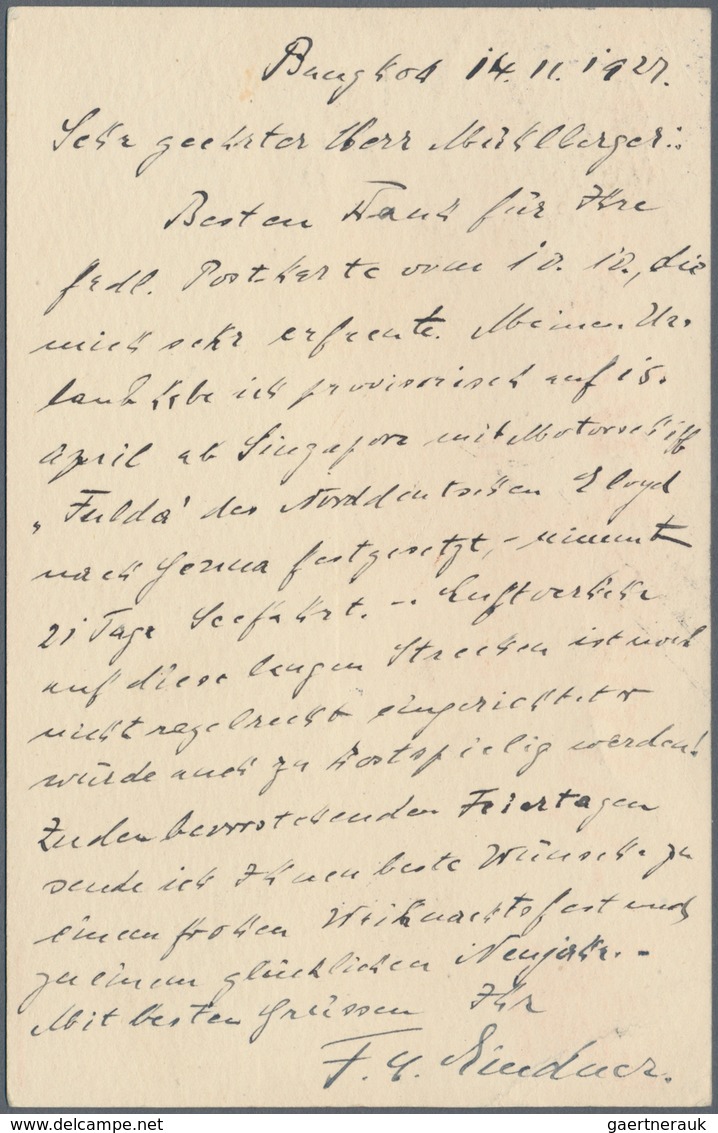 Bangkok 14.11.1927.
Sehr geehrter Herr Mühlberger:
Besten Dank für Ihre
frdl. Postkarte vom 10.10., die
mich sehr erfreute. Meinen Ur-
laub habe ich provisorisch auf 15.
April ab Singapore mit Motorschiff
„Fulda" des Norddeutschen Lloyd
nach Genua festgesetzt, - nimmt
21 Tage Seefahrt. - Luftverkehr
auf diese langen Strecken ist noch
nicht regelrecht eingerichtet u
würde auch zu kostspielig werden!
Zu den bevorstehenden Feiertagen
sende ich Ihnen beste Wünsche zu
einem frohen Weihnachtsfest und
zu einem glücklichen Neujahr. -
Mit besten Grüssen Ihr
F. H. Lindner.
gaertnerauk